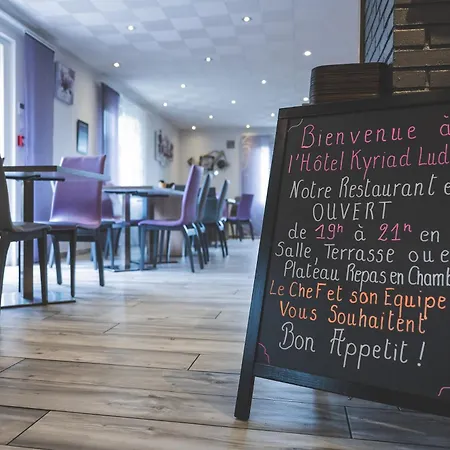 Bienvenue à
l'Hôtel Kyriad Lud
Notre Restaurant e
OUVERT
de 19h à 21h en
Salle, Terrasse ou e
Plateau Repas en Chamb
Le Chef et son Equipe
Vous Souhaitent
Bon Appetit !